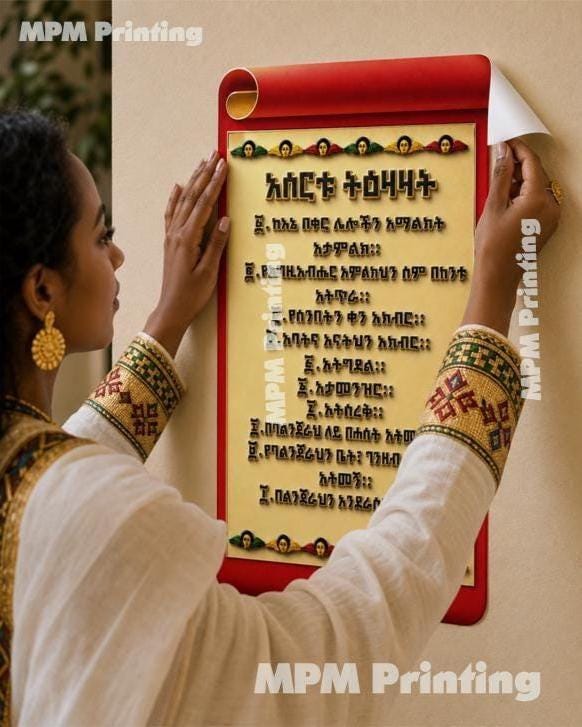 MPM Printing
አሰርቱ ትዕዛዛት
፩.ከእኔ በቀር ሌሎችን አማልክት
አታምልክ፡፡
፪.የእግዚአብሔር አምልክህን ስም በከንቱ
አትጥራ፡፡
የሰንበትን ቀን አክብር፡፡
አባትና እናትህን አክብር፡፡
፭.አትግደል፡፡
፮.አታመንዝር፡፡
፯.አትስረቅ፡፡
፰.በባልንጀራህ ላይ በሐሰት
፱.የባልንጀራህን ቤት፤
አትመኝ፡፡
፲.በልንጀራህን
MPM Printing
MPM Printing
MPM Printing